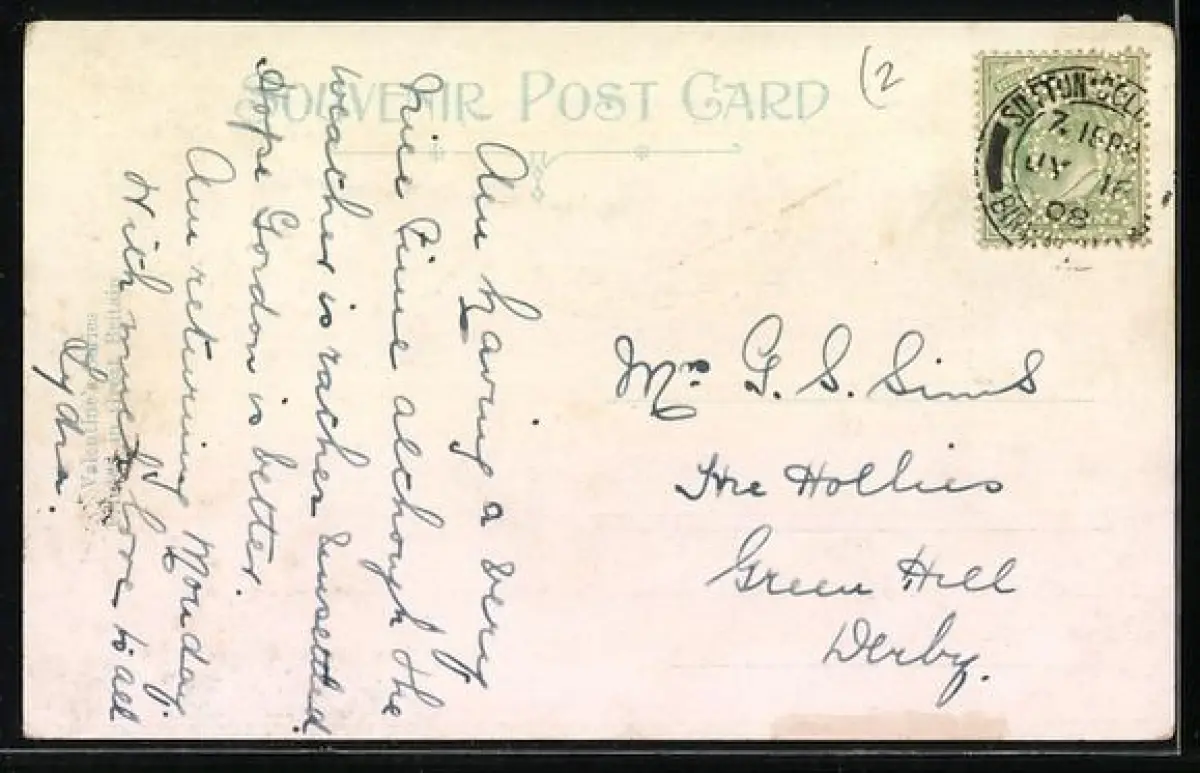 SOUVENIR POST CARD
(2
SUTTON·COLD
7.15PM
JY 16
08
BIRM
Am having a very
nice time although the
weather is rather unsettled.
Hope Gordon is better.
Am returning Monday.
With much love to all
Lydia.
Mrs G. S. Sims
The Hollies
Green Hill
Derby.
Valentine's Series